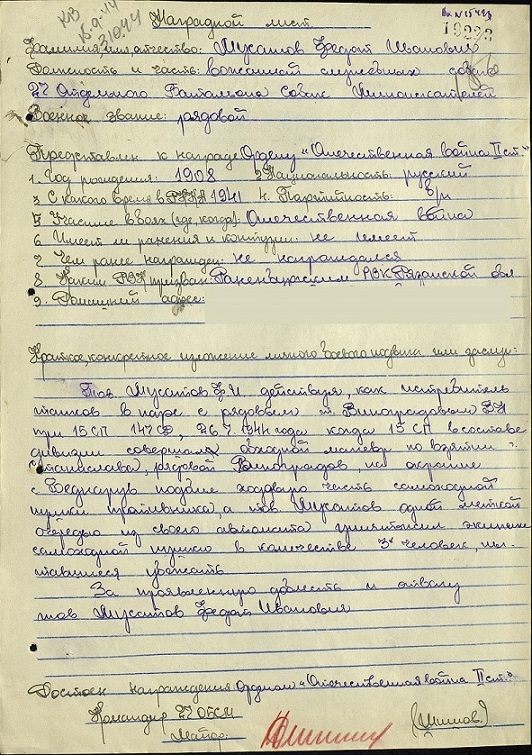 КЛВ
15-9-44
31044
Вх №15493
19223
Наградной лист
Фамилия, имя, отчество: Мусатов Федот Иванович
Должность и часть: вожатый служебных собак
27 Отдельного Батальона Собак Миноискателей
Военное звание: рядовой
Представлен к награде Ордену "Отечественная война II ст."
1. Год рождения: 1908 2 Национальность: русский
3 С какого время в РККА 1941 4. Партийность: б/п
5 Участие в боях (где, когда): Отечественная война
6 Имеет ли ранения и контузии: не имеет
7 Чем ранее награжден: не награждался
8. Каким РВК призван: Раненбургским РВК Рязанской обл
9. Домашний адрес:
Краткое, конкретное изложение личного боевого подвига или заслуг:
Тов Мусатов Ф.И. действуя, как истребитель
танков в паре с рядовым т. Виноградовым
при 15 СП 147 СД, 26.7.1944 года когда 15 СП в составе
дивизии совершал обходной маневр по взятии г.
Станиславов, рядовой Виноградов, на окраине
с Беднарув подбил ходовую часть самоходной
пушки противника, а тов. Мусатов одной меткой
очередью из своего автомата уничтожил экипаж
самоходной пушки в количестве 3х человек, пы-
тавшиеся убежать
За проявленную доблесть и отвагу
тов Мусатов Федот Иванович
Достоин награждения Орденом "Отечественная война II ст."
Командир 27 ОБСМ
Майор: (Шилов)